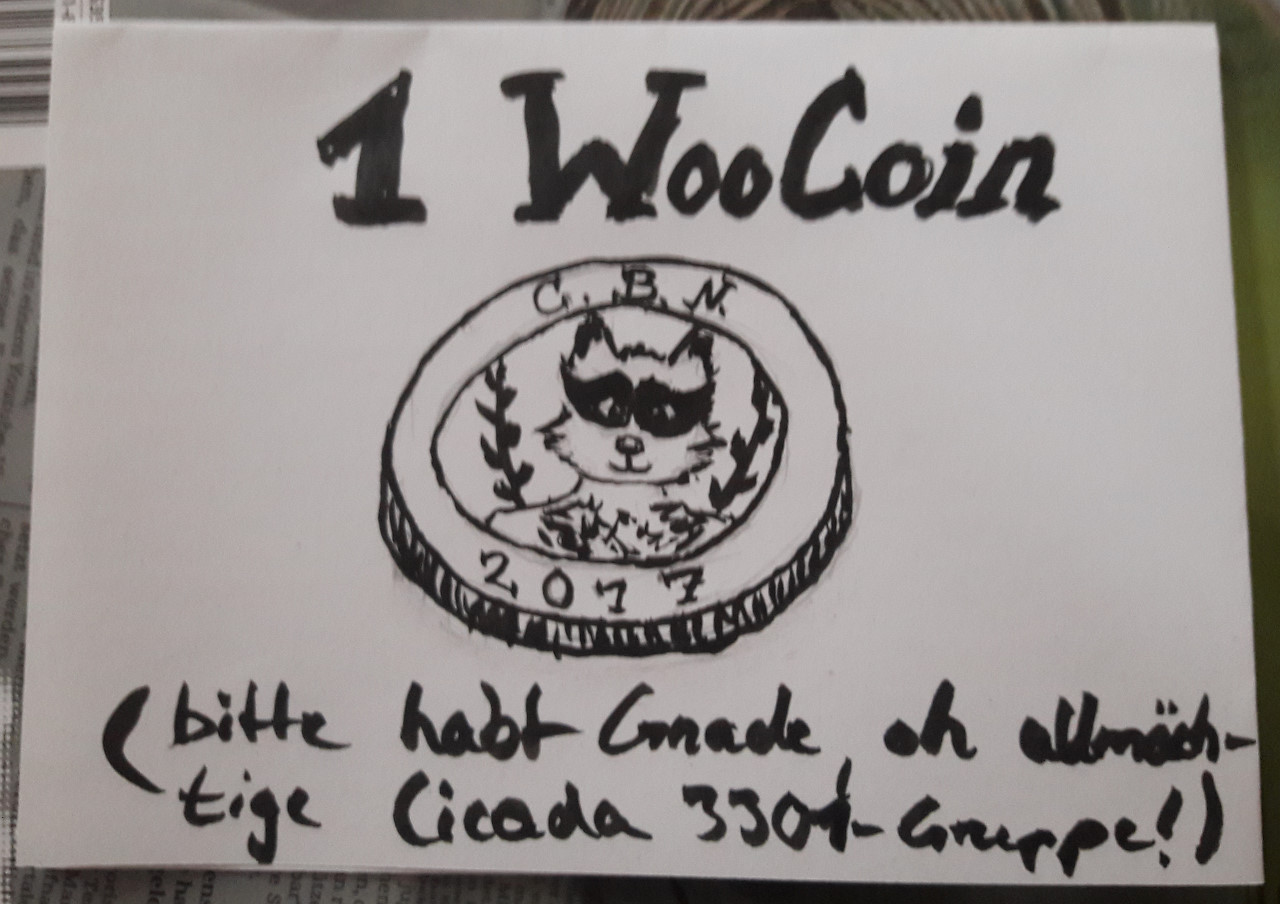 1 WooCoin
C. B. N.
2017
(bitte habt Gnade, oh allmäch-
tige Cicada 3301-Gruppe!)